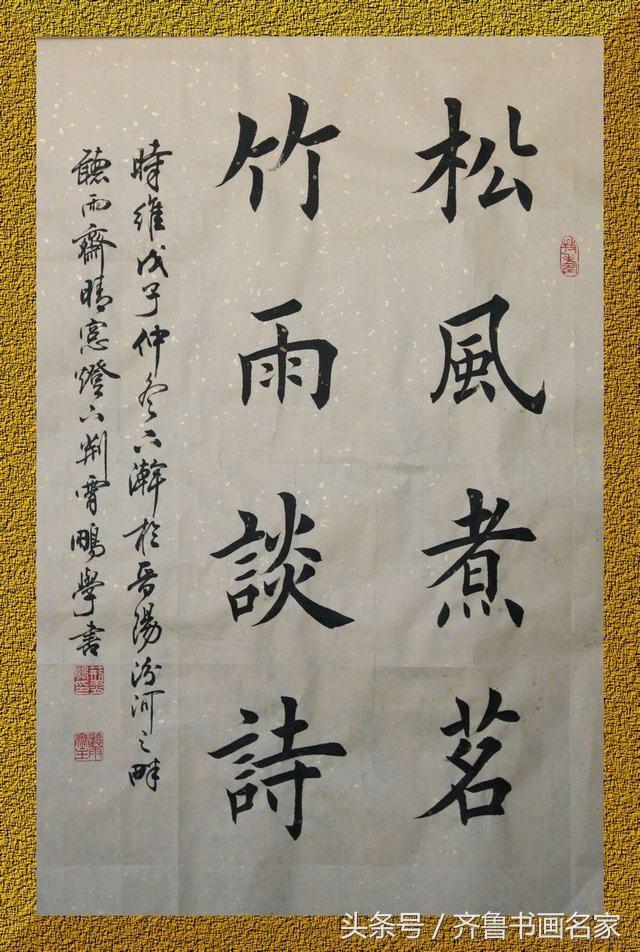 松風煮茗
竹雨談詩
時維戊子仲冬下澣於晋陽汾河之畔
聽雨齋晴窓燈下荆霄鵬學書
头条号／齐鲁书画名家